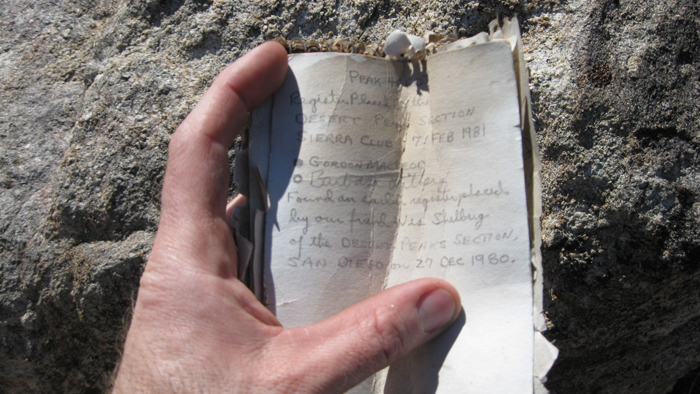 PEAK
Register Placed by the
DESERT PEAKS SECTION
SIERRA CLUB 7 FEB 1981
GORDON MACLEOD
Barbara Lilley
Found an earlier register placed
by our friend Wes Shelberg
of the DESERT PEAKS SECTION,
SAN DIEGO on 27 DEC 1980.